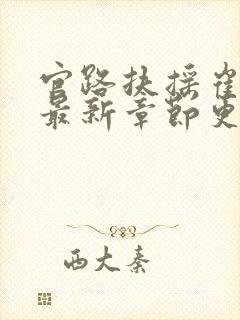 官路扶摇崔
最新章节更
西大秦